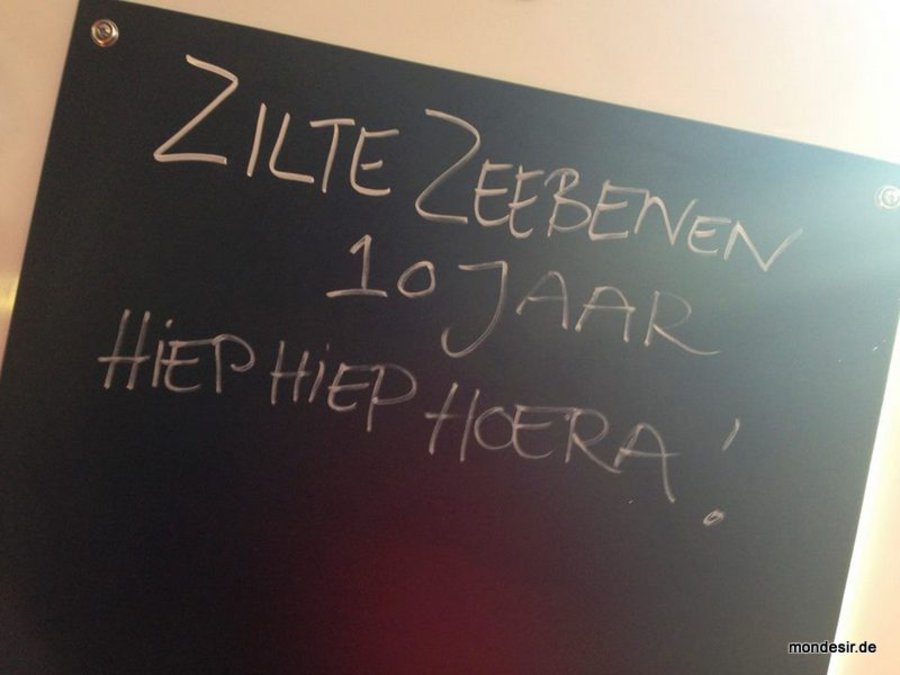 ZILTE ZEEBENEN
10 JAAR
HiEP HiEP HOERA!
mondesir.de